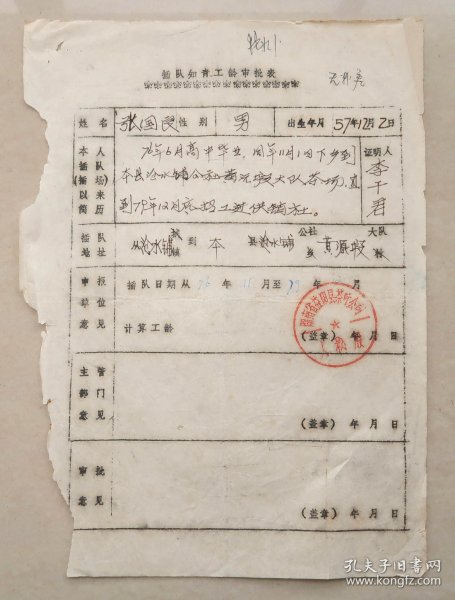 插队知青工龄审批表
姓名 张国良 性别 男 出生年月 57年12月2日
本人插队(插场)以来简历
76年6月高中毕业,同年11月1日下乡到
本县沧水铺公社黄元段大队茶场,直
到79年12月底招工进供销社。
证明人 李干君
插队地址 从沧水铺 到 本 县 沧水铺 公社 乡 黄源段 大队 村
申报单位意见
插队日期从 76 年 11 月至 79 年 月
计算工龄
(盖章) 年 月 日
湖南省益阳县茶叶公司
主管部门意见
(盖章) 年 月 日
审批意见
(盖章) 年 月 日
孔夫子旧书网
www.kongfz.com